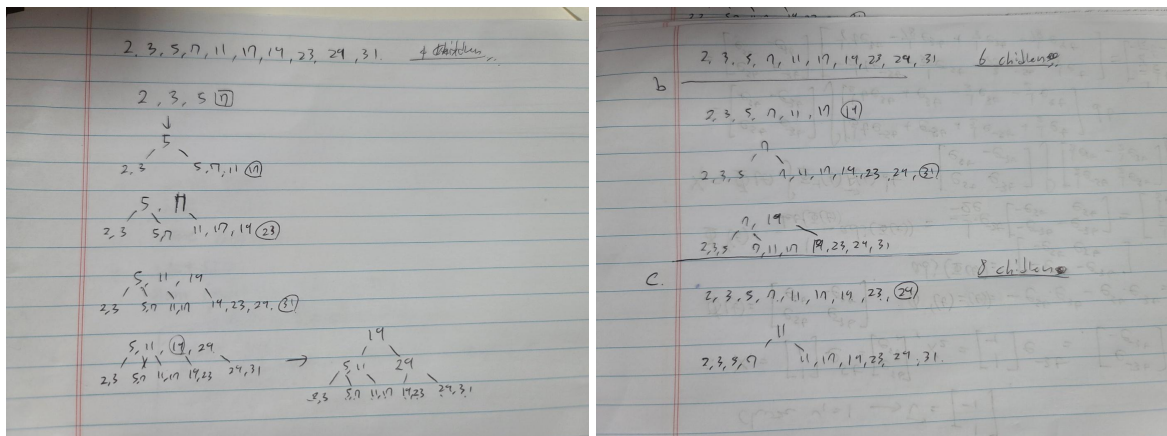 2, 3, 5, 7, 11, 17, 19, 23, 29, 31. 4 children
2, 3, 5 7
5
2, 3 5, 7, 11 17
5, 11
2, 3 5, 7 11, 17, 19 23
5, 11, 19
2, 3 5, 7 11, 17 19, 23, 29, 31
5, 11, 19, 29
2, 3 5, 7 11, 17 19, 23 29, 31
19
5, 11 29
2, 3 5, 7 11, 17 19, 23 29, 31
2, 3, 5, 7, 11, 17, 19, 23, 29, 31 6 children
b
2, 3, 5, 7, 11, 17 19
7
2, 3, 5 7, 11, 17, 19, 23, 29, 31
7, 19
2, 3, 5 7, 11, 17 19, 23, 29, 31
8 children
C.
2, 3, 5, 7, 11, 17, 19, 23, 29
11
2, 3, 5, 7 11, 17, 19, 23, 29, 31.